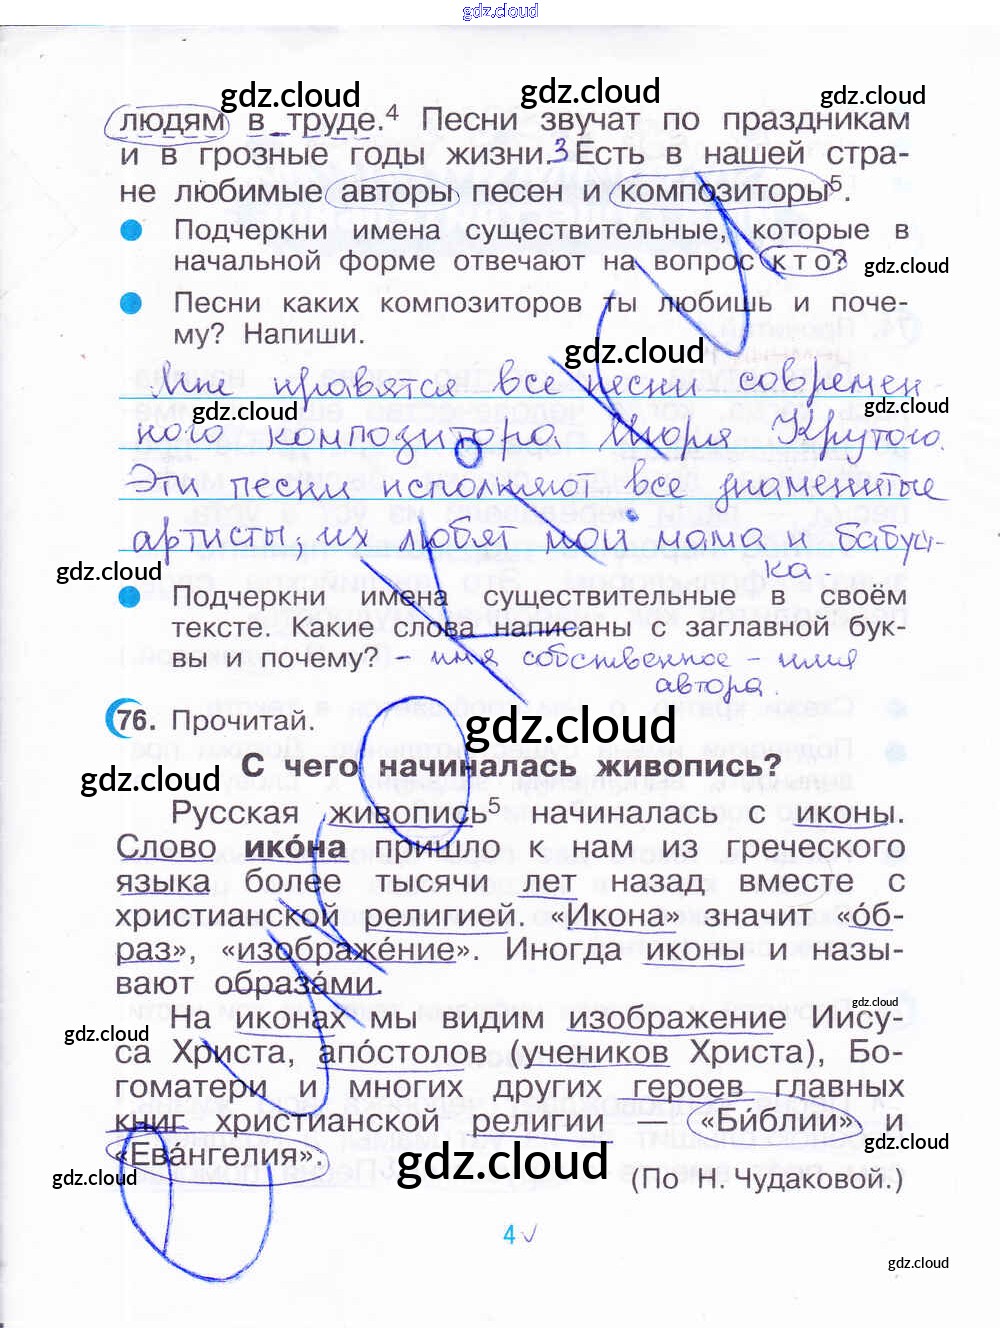 gdz.cloud
gdz.cloud gdz.cloud gdz.cloud
людям в труде.⁴ Песни звучат по праздникам
и в грозные годы жизни.3 Есть в нашей стра-
не любимые авторы песен и композиторы⁵.
Подчеркни имена существительные, которые в
начальной форме отвечают на вопрос кто?
gdz.cloud
Песни каких композиторов ты любишь и поче-
му? Напиши.
gdz.cloud
Мне нравятся все песни современ
gdz.cloud gdz.cloud
ного композитора Игоря Крутого.
Эти песни исполняют все знаменитые
артисты, их любят мои мама и бабуш-
ка.
gdz.cloud gdz.cloud
Подчеркни имена существительные в своём
тексте. Какие слова написаны с заглавной бук-
вы и почему? - имя собственное - имя
автора.
76. Прочитай.
gdz.cloud
С чего начиналась живопись?
gdz.cloud
Русская живопись⁵ начиналась с иконы.
Слово ико́на пришло к нам из греческого
языка более тысячи лет назад вместе с
христианской религией. «Икона» значит «о́б-
раз», «изображе́ние». Иногда иконы и назы-
вают образа́ми.
gdz.cloud
На иконах мы видим изображение Иису-
gdz.cloud
са Христа, апо́столов (учеников Христа), Бо-
гоматери и многих других героев главных
книг христианской религии — «Би́блии» и
gdz.cloud
«Ева́нгелия».
gdz.cloud gdz.cloud
(По Н. Чудаковой.)
4
gdz.cloud